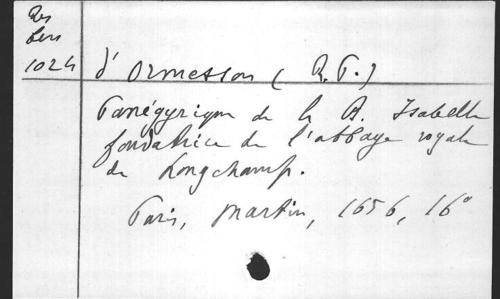 Res
1024
d'Ormesson (R. P.)
Panégyrique de la B. Isabelle
fondatrice de l'abbaye royale
de Longchamp.
Paris, Martin, 1656, 16°